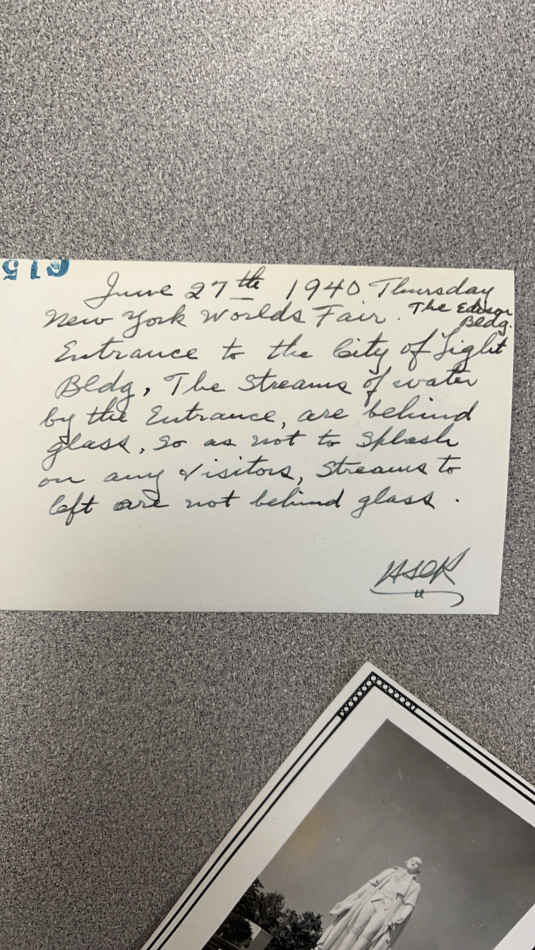 June 27th 1940 Thursday
New York Worlds Fair. The Edison
Bldg.
Entrance to the City of Light
Bldg, The Streams of water
by the Entrance, are behind
glass, so as not to Splash
on any visitors, Streams to
left are not behind glass.